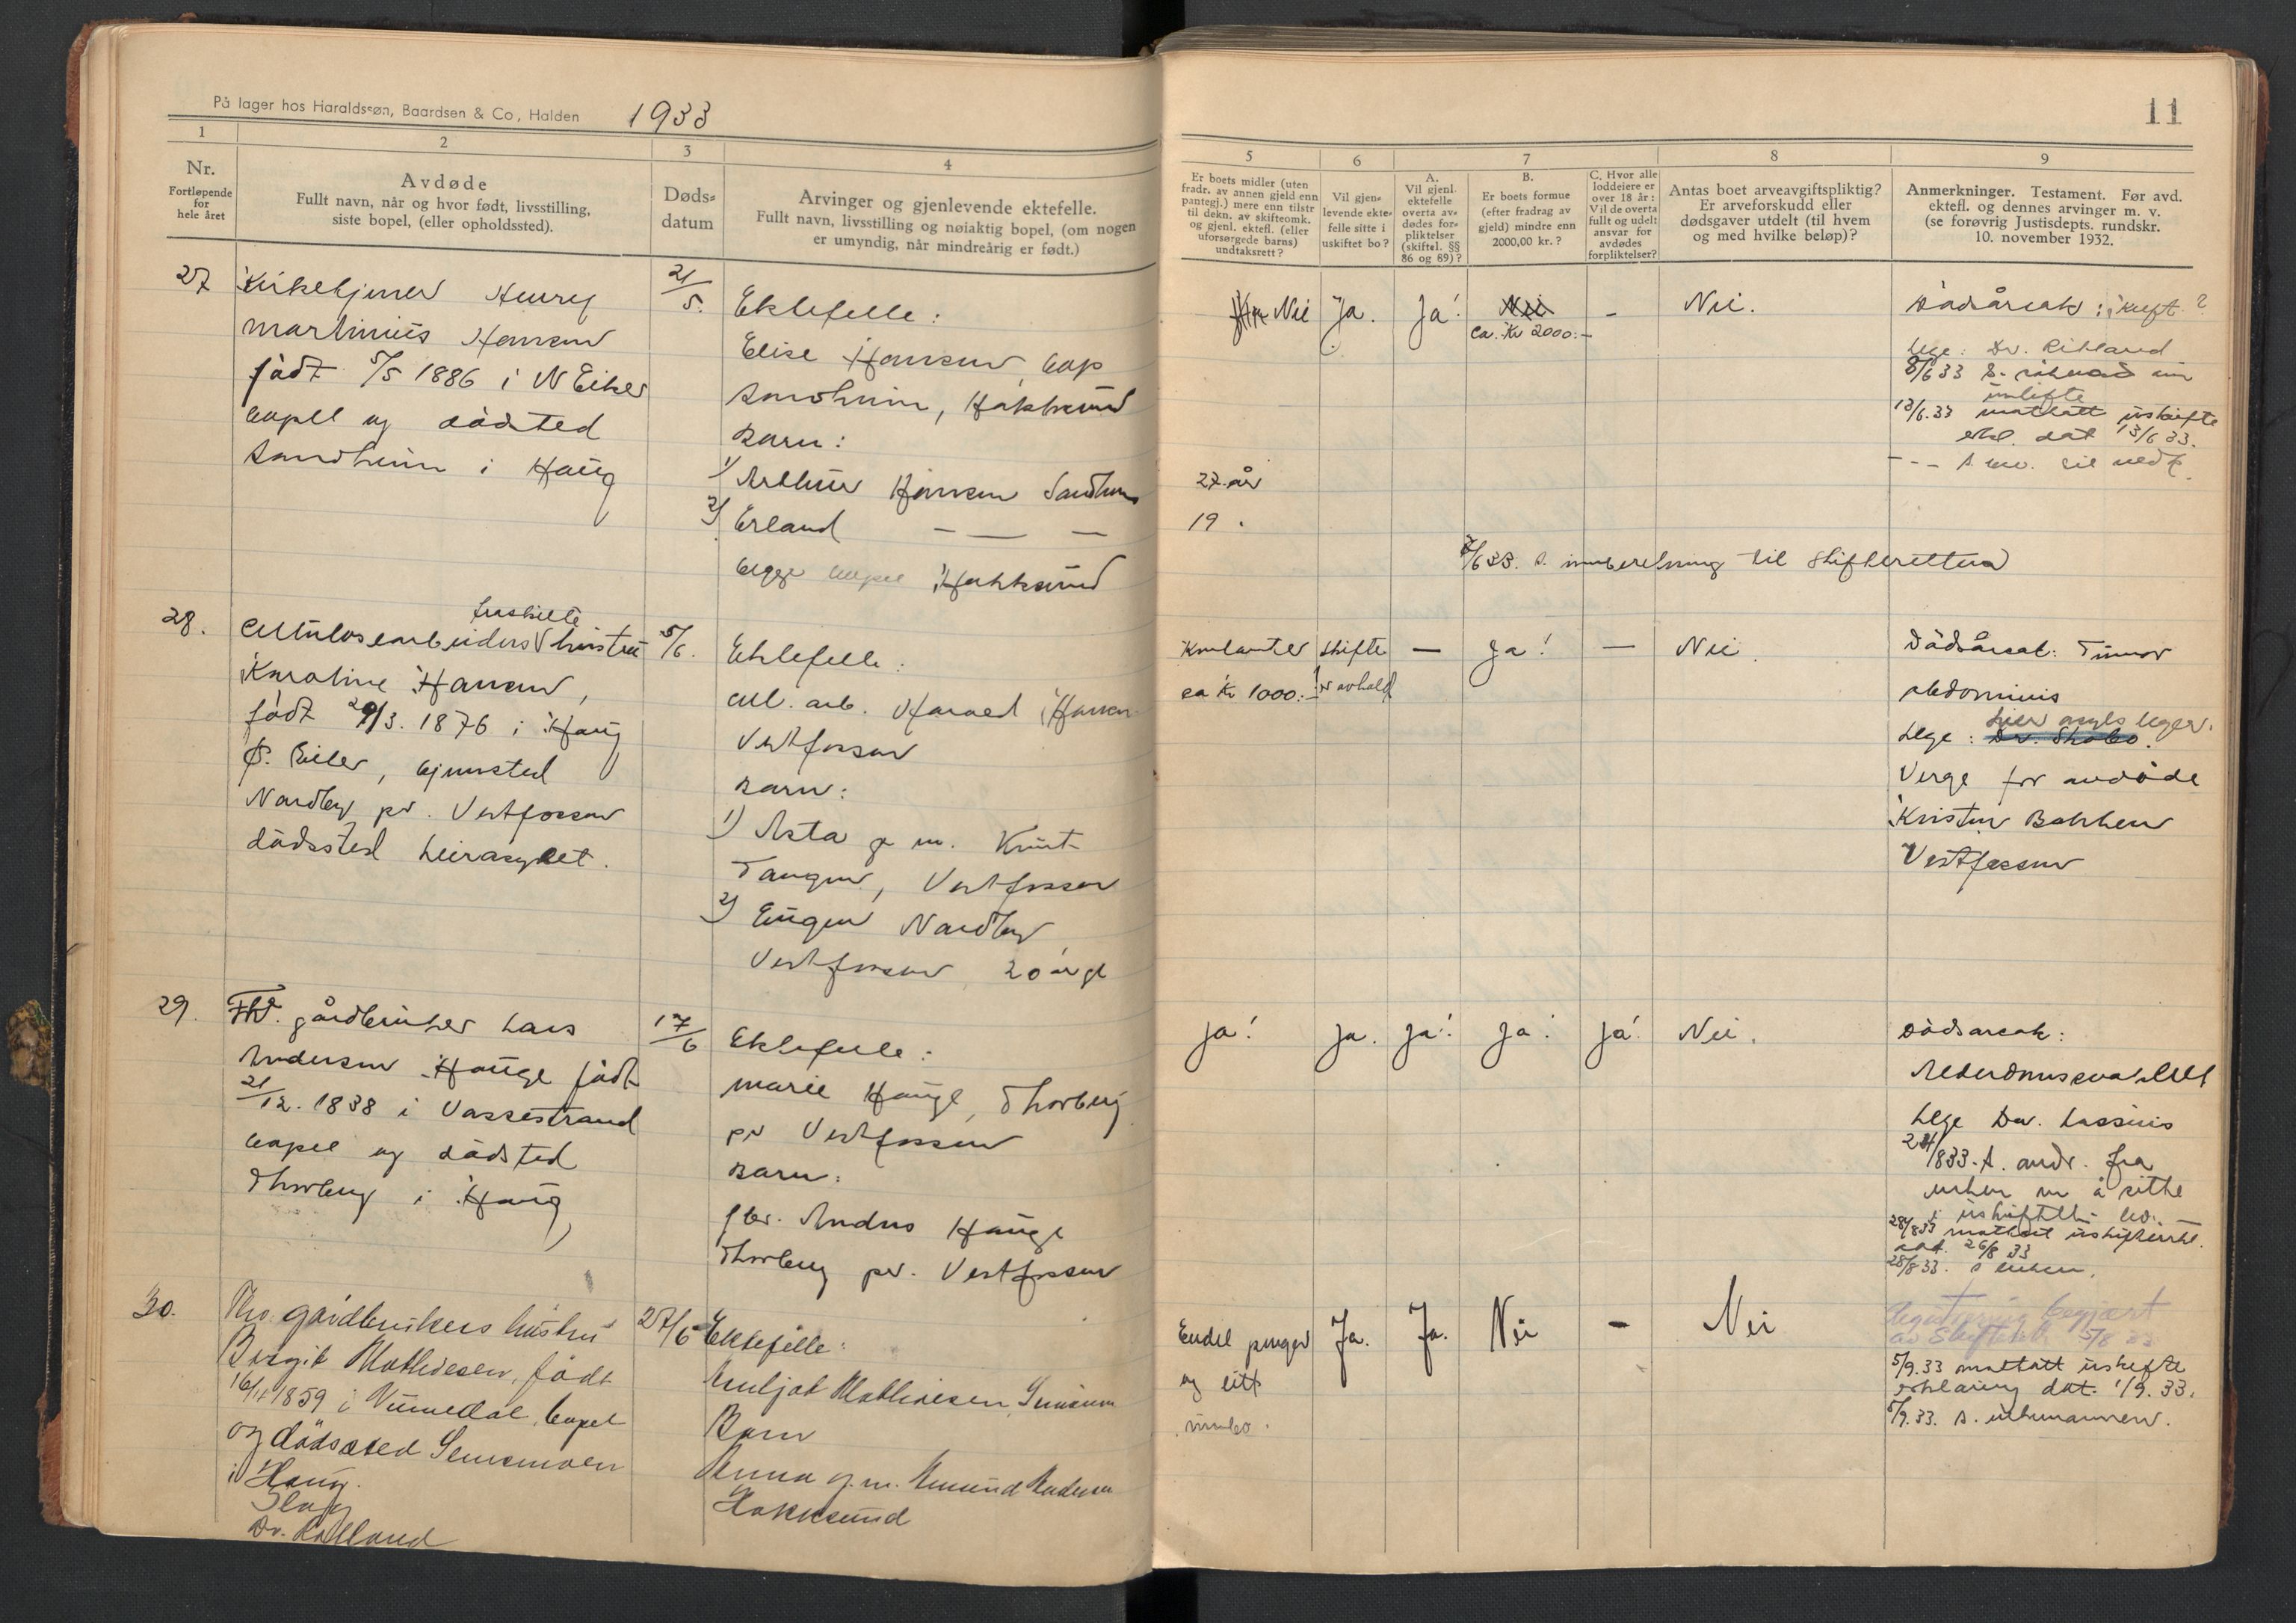 På lager hos Haraldssøn, Baardsen & Co, Halden
1933
1
2
3
4
Nr.
Fortløpende
for
hele året
Avdøde
Fullt navn, når og hvor født, livsstilling,
siste bopel, (eller opholdssted).
Døds-
datum
Arvinger og gjenlevende ektefelle.
Fullt navn, livsstilling og nøiaktig bopel, (om nogen
er umyndig, når mindreårig er født.)
27
Kirketjener Henry
Martinius Hansen
født 5/5 1886 i N Eiker
bopel og dødsted
Sandheim i Haug
21/5.
Ektefelle:
Elise Hansen, bop
Sandheim, Hokksund
Barn:
1) Arthur Hansen Sandheim
2) Erland — — —
begge bopel Hokksund
28.
fraskilte
Cellulosearbeiders V hustru
Karoline Hansen,
født 29/3. 1876 i Haug
Ø. Eiker, hjemsted
Nordby pr. Vestfossen
dødssted Lierasylet.
5/6.
Ektefelle:
cell. arb. Harald Hansen
Vestfossen
Barn:
1) Asta g. m. Knut
Tangen, Vestfossen
2) Eugen Nordby
Vestfossen 20 år gl
29.
Fhv. gårdbruker Lars
Andersen Hauge født
21/12. 1838 i Vassestrand
bopel og dødsted
Thorberg i Haug
17/6
Ektefelle:
Marie Hauge, Thorberg
pr Vestfossen
Barn:
gbr. Anders Hauge
Thorberg pr. Vestfossen
30.
Fhv. gårdbrukers hustru
Birgit Mathiesen, født
16/11 1859 i Numedal, bopel
og dødssted Semsmoen
i Haug.
Slag
Dr. Rolland
27/6
Ektefelle:
Mathiesen
Barn
Anna g.m. Amund
Hokksund
11
5
6
7
8
9
Er boets midler (uten
fradr. av annen gjeld enn
pantegj.) mere enn tilstr
til dekn. av skifteomk.
og gjenl. ektefl. (eller
uforsørgede barns)
undtaksrett?
Vil gjen-
levende ekte-
felle sitte i
uskiftet bo?
A.
Vil gjenl.
ektefelle
overta av-
dødes for-
pliktelser
(skiftel. §§
86 og 89)?
B.
Er boets formue
(efter fradrag av
gjeld) mindre enn
2000,00 kr.?
C. Hvor alle
loddeiere er
over 18 år:
Vil de overta
fullt og udelt
ansvar for
avdødes
forpliktelser?
Antas boet arveavgiftspliktig?
Er arveforskudd eller
dødsgaver utdelt (til hvem
og med hvilke beløp)?
Anmerkninger. Testament. Før avd.
ektefl. og dennes arvinger m. v.
(se forøvrig Justisdepts. rundskr.
10. november 1932.
Nei
Ja.
Ja!
Nei
ca. Kr 2000.-
–
Nei.
Dødsårsak: Kreft?
Lege: Dr. Rolland
8/6 33 s.
13/6.33 mottatt uskifte
erkl. dat 13/6 33.
27 år
19 "
7/6 33. s. innberetning til skifteretten
Kontanter
ca Kr 1000.-
skifte
er avholdt
—
Ja!
—
Nei.
Dødsårsak: Tumor
abdominis
Lier asyls leger.
Lege: Dr. Skobo.
Verge for avdøde
Kristen Bakken
Vestfossen
Ja!
Ja.
Ja!
Ja!
Ja!
Nei.
Dødsårsak:
Alderdomssvakhet
Lege Dr. Lassius
24/8 33. A. andr. fra
enken om å sitte
i uskiftet bo.
28/8 33 mottatt uskifteerkl.
dat. 26/8 33
28/8 33. s enken.
Endel penger
og litt
innbo.
Ja.
Ja.
Nei
–
Nei
begjært
av Skifterett 5/8 33
5/9.33 mottatt uskifte
erklæring dat. 1/9. 33.
5/9.33. s. enkemannen.